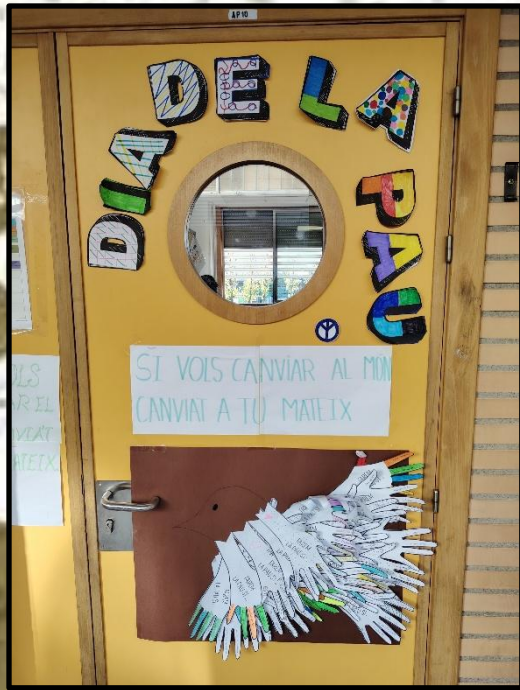 AP10
DIA DE LA PAU
SI VOLS CANVIAR AL MÓN
CANVIAT A TU MATEIX
OLS
AR EL
NVIAT
ATEIX